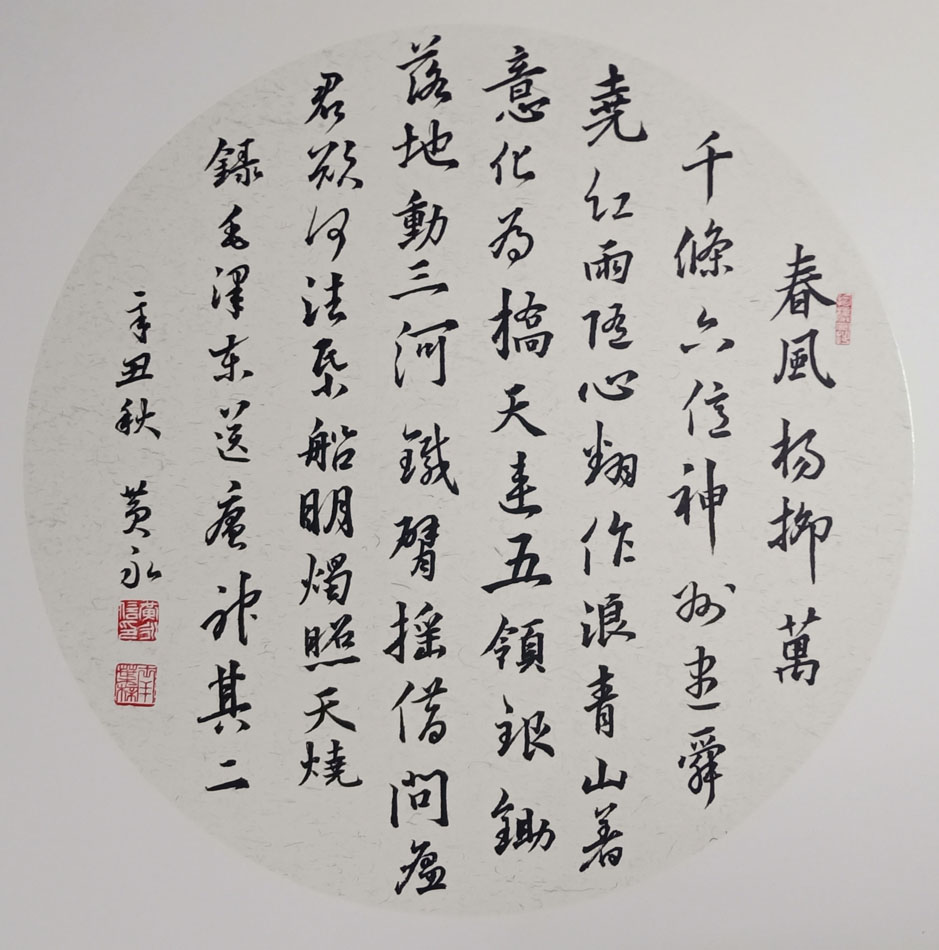 春風杨柳萬
千條六億神州盡舜
堯紅雨随心翻作浪青山着
意化為橋天連五領銀鋤
落地動三河鐵臂摇借問瘟
君欲何往紙船明燭照天燒
錄毛澤东送瘟神其二
辛丑秋 黄永